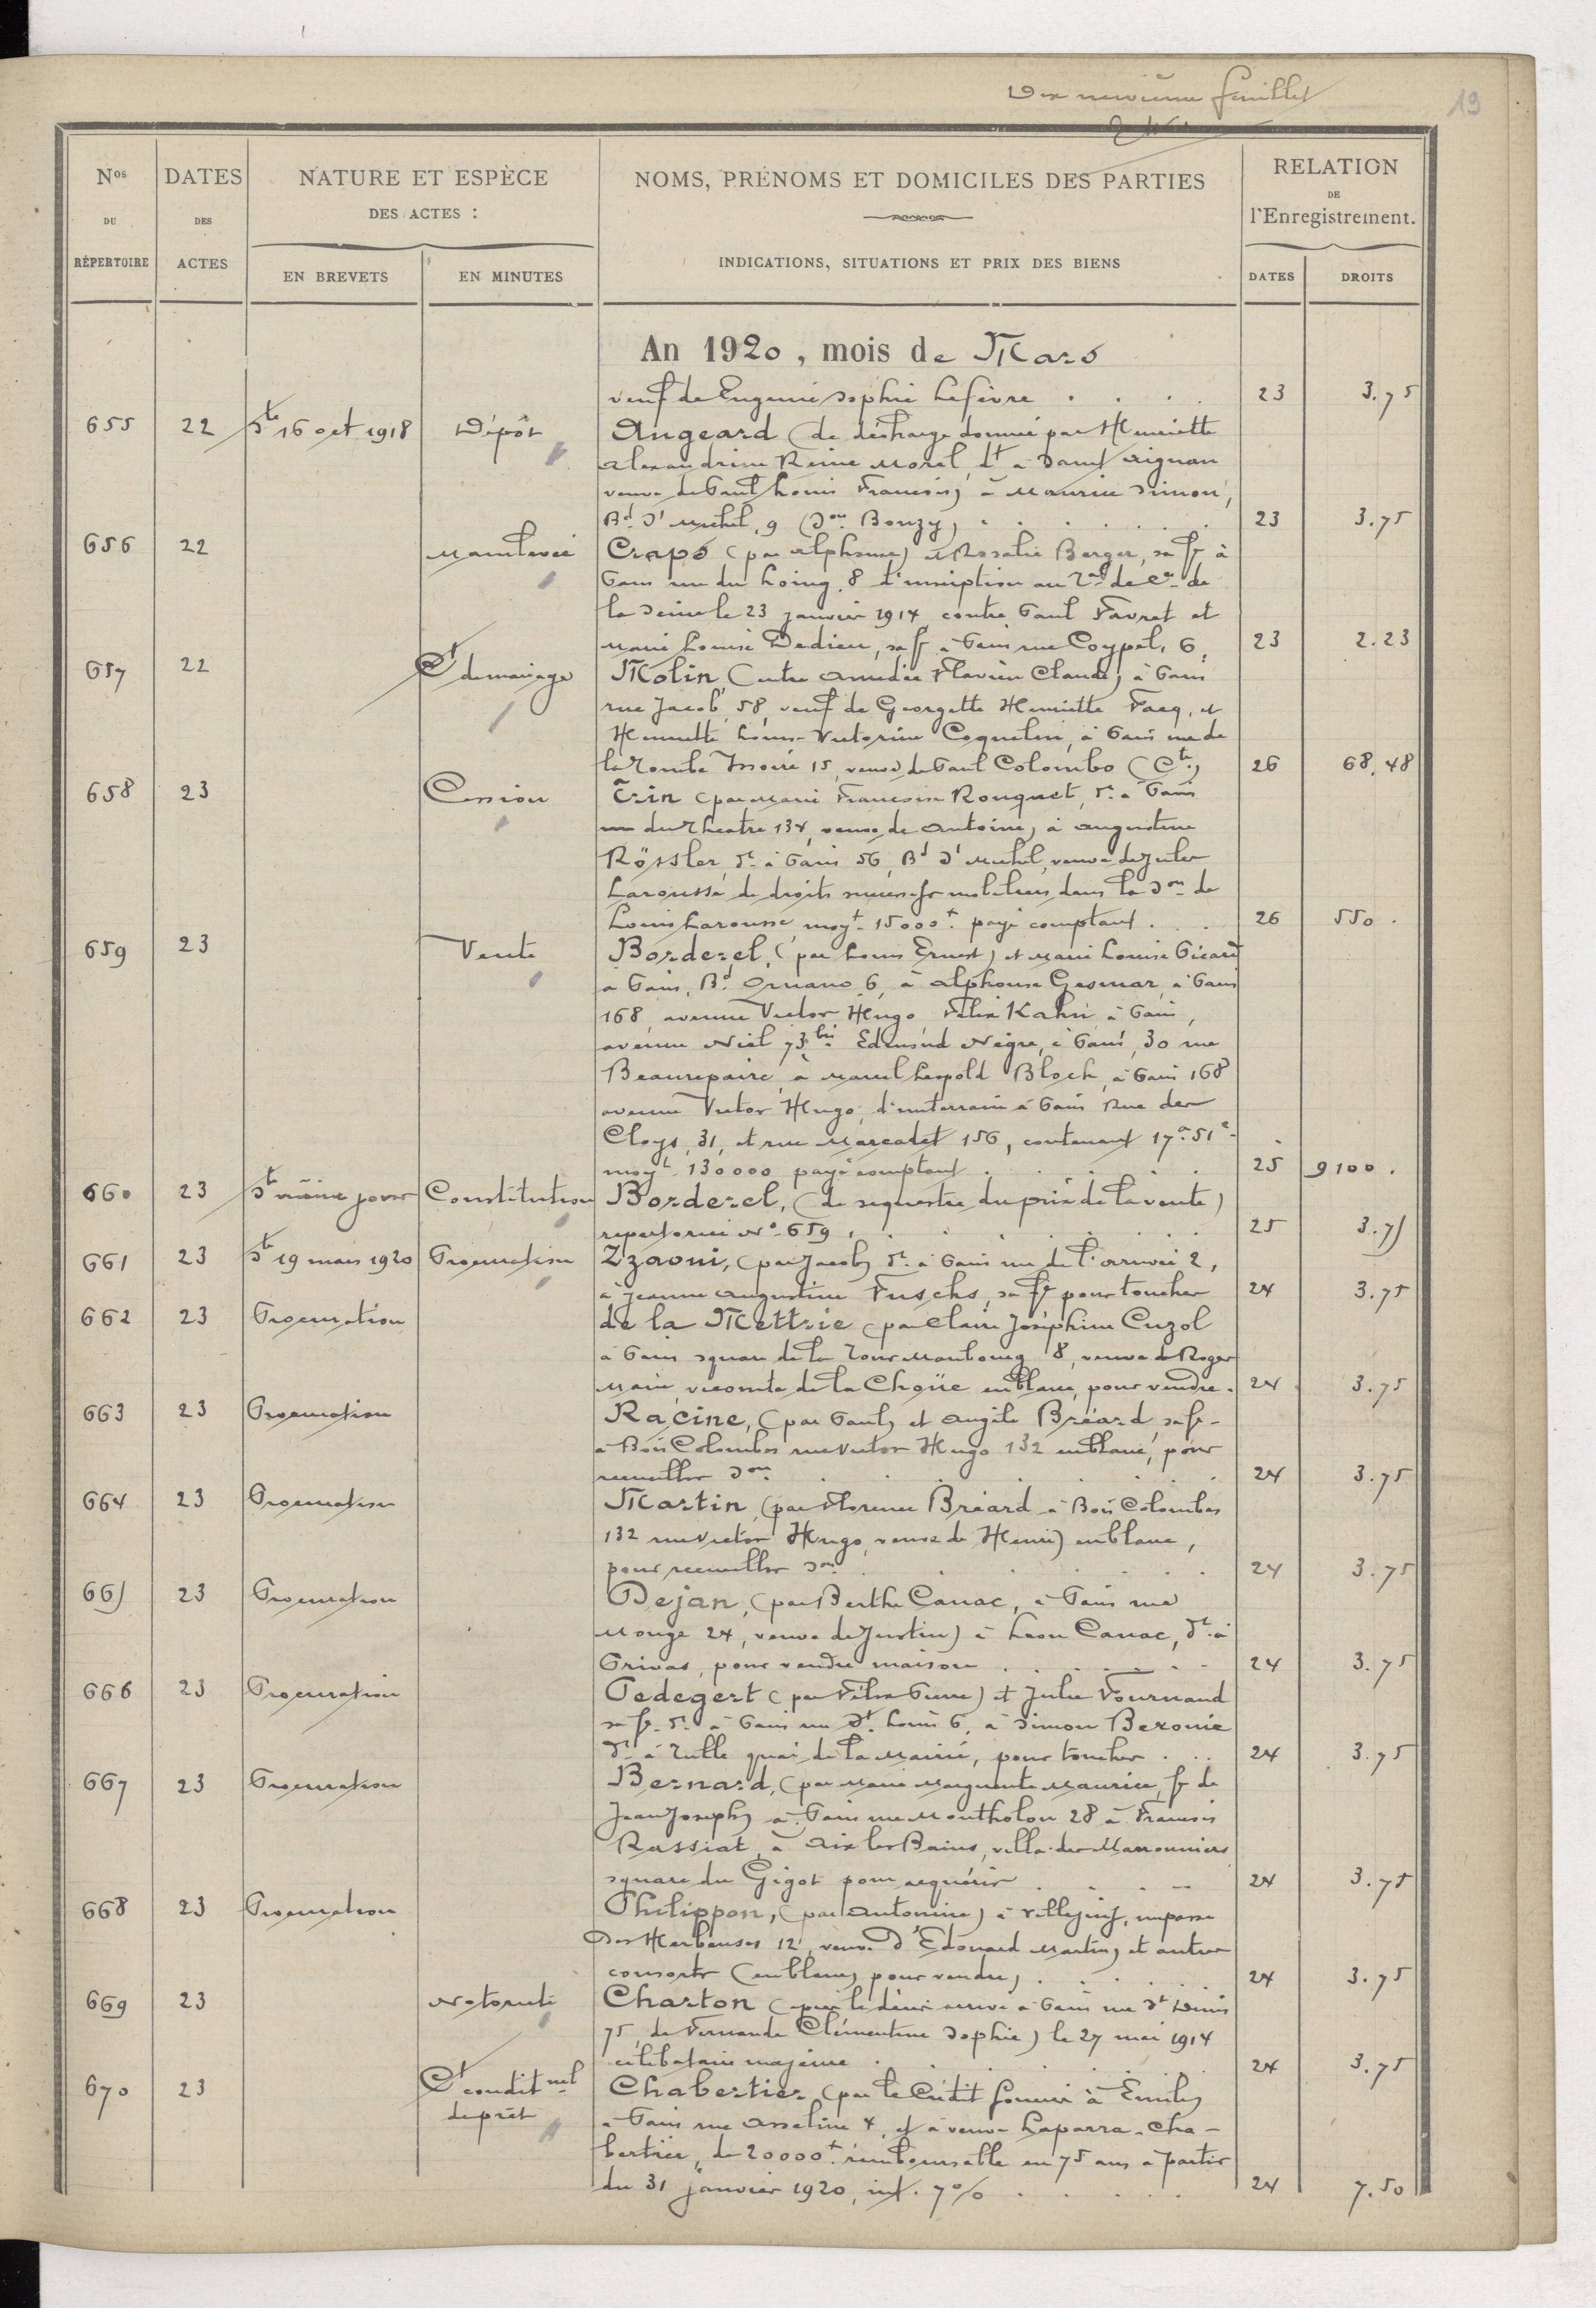 Dix neuvième feuillet
19
Nos DU RÉPERTOIRE
DATES DES ACTES
NATURE ET ESPÈCE DES ACTES :
EN BREVETS
EN MINUTES
NOMS, PRÉNOMS ET DOMICILES DES PARTIES
INDICATIONS, SITUATIONS ET PRIX DES BIENS
RELATION DE l'Enregistrement.
DATES
DROITS
An 1920, mois de Mars
veuf de Eugénie Sophie Lefèvre . . . . 23 3.75
655 22 St 16 oct 1918 Dépôt Angeard (de décharge donnée par Henriette
Alexandrine Reine Morel, dt à Saint Aignan
veuve de Paul Louis François) à Maurice Simon,
Bd St Michel, 9 (son Bouzy) . . . . 23 3.75
656 22 Mainlevée Craps (par Alphonse) et Rosalie Berger, sa fe à
Paris rue du Loing, 8 d'inscription au 2me de con de
la Seine le 23 janvier 1914 contre Paul Favret et
Marie Louise Dedieu, sa f à Paris rue Coypel, 6, 23 2.23
657 22 Ct de mariage Molin (entre Amédée Flavien Claude) à Paris
rue Jacob, 58, veuf de Georgette Henriette Facq, et
Henriette Louise Victorine Coquelin, à Paris rue de
la Tombe Issoire 15, veuve de Paul Colombo (Ct) 26 68,48
658 23 Cession Trin (par Marie Françoise Rouquet, dt à Paris
rue du Théatre 134, veuve de Antoine) à Augustine
Rössler, dt à Paris 56, Bd St Michel, veuve de Jules
Larousse de droits successifs mobiliers dans la son de
Louis Larousse moyt 15000f payé comptant . 26 550.
659 23 Vente Borderel, (par Louis Ernest) et Marie Louise Picard
à Paris, Bd Ornano 6, à Alphonse Gesmar, à Paris
168, avenue Victor Hugo Félix Kahn, à Paris,
avenue Niel 73 bis Edmond Nègre, à Paris, 30 rue
Beaurepaire, à Marcel Léopold Bloch, à Paris 168
avenue Victor Hugo, d'un terrain à Paris Rue des
Cloys, 31, et rue Marcadet 156, contenant 17a 51c
moyt 130000 payé comptant . . . . 25 9100.
660 23 St même jour Constitution Borderel, (de séquestre du prix de la vente)
répertoriée No 659, . . . . 25 3.75
661 23 St 19 mars 1920 Procuration Zzaoui, (par Jacob) dt à Paris rue de l'arrivée 2,
à Jeanne Augustine Fuschs, sa fe pour toucher 24 3.75
662 23 Procuration de la Mettrie (par Claire Joséphine Cuzol
à Paris square de la Tour Maubourg 8, veuve de Roger
Marie, vicomte de la Choüe en blanc, pour vendre. 24 3.75
663 23 Procuration Racine, (par Paul) et Angèle Bréard, sa fe
à Bois Colombes rue Victor Hugo 132 en blanc, pour
recueillir son . . . . 24 3.75
664 23 Procuration Martin, (par Florence Bréard à Bois Colombes
132 rue Victor Hugo, veuve de Henri) en blanc,
pour recueillir son . . . . 24 3.75
665 23 Procuration Dejan, (par Berthe Canac, à Paris rue
Monge 24, veuve de Justin) à Léon Canac, dt à
Privas, pour vendre maison . . . . 24 3.75
666 23 Procuration Pedegert (par Félix Pierre) et Julie Fournaud
sa fe dt à Paris rue St Louis 6, à Simon Beronie
dt à Tulle quai de la Mairie, pour toucher . . 24 3.75
667 23 Procuration Bernard, (par Marie Marguerite Maurice, fe de
Jean Joseph) à Paris rue Montholon 28 à François
Rassiat, à Aix les Bains, villa des Marronniers
square du Gigot pour acquérir . . . . 24 3.75
668 23 Procuration Philippon, (par Antonine) à Villejuif, impasse
Des Herbeuses 12, veuve d'Edouard Martin) et autres
consorts (en blanc) pour vendre) . . . . 24 3.75
669 23 Notoriété Charton (après le décès arrivé à Paris rue St Denis
75, de Fernande Clémentine Sophie) le 27 mai 1914
célibataire majeure . . . . 24 3.75
670 23 Ct conditnel de prêt Chabertier (par le Crédit foncier à Emile)
à Paris rue Asseline 4, et à veuve Laparra-Cha-
bertier, de 20000f remboursable en 75 ans à partir
du 31 janvier 1920, int. 7% . . . . 24 7.50